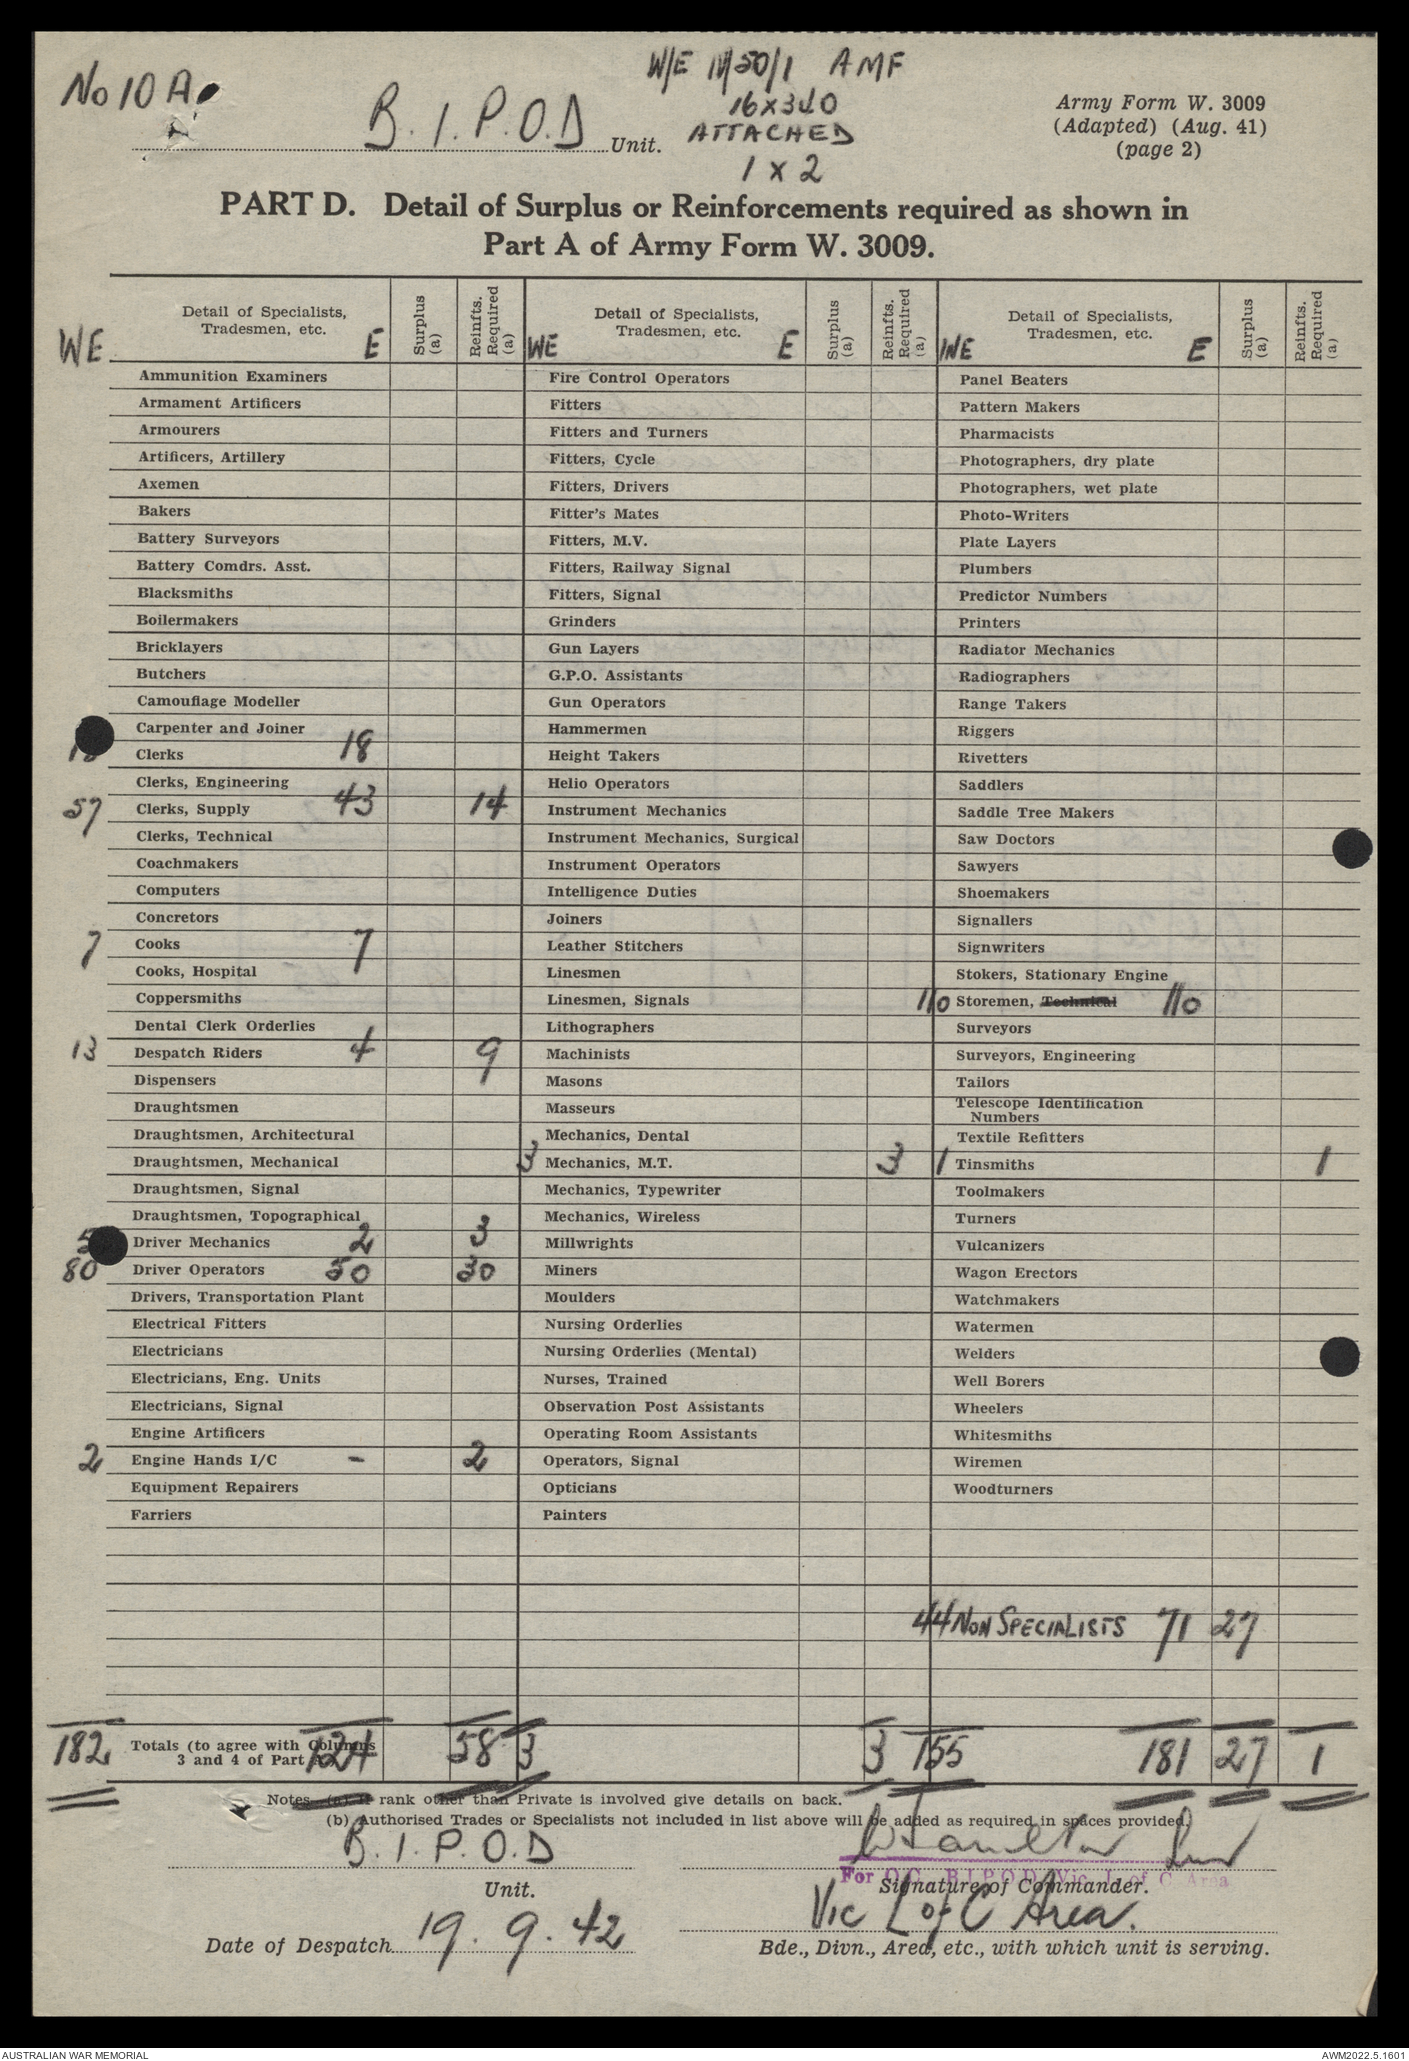 No 10 A.
W/E 11/50/1 AMF
16 x 3
ATTACHED
1 x 2
B.I.P.O.D Unit.
Army Form W. 3009
(Adapted) (Aug. 41)
(page 2)
PART D. Detail of Surplus or Reinforcements required as shown in
Part A of Army Form W. 3009.
WE Detail of Specialists, Tradesmen, etc. E Surplus (a) Reinfts. Required (a) WE Detail of Specialists, Tradesmen, etc. E Surplus (a) Reinfts. Required (a) WE Detail of Specialists, Tradesmen, etc. E Surplus (a) Reinfts. Required (a)
Ammunition Examiners Fire Control Operators Panel Beaters
Armament Artificers Fitters Pattern Makers
Armourers Fitters and Turners Pharmacists
Artificers, Artillery Fitters, Cycle Photographers, dry plate
Axemen Fitters, Drivers Photographers, wet plate
Bakers Fitter's Mates Photo-Writers
Battery Surveyors Fitters, M.V. Plate Layers
Battery Comdrs. Asst. Fitters, Railway Signal Plumbers
Blacksmiths Fitters, Signal Predictor Numbers
Boilermakers Grinders Printers
Bricklayers Gun Layers Radiator Mechanics
Butchers G.P.O. Assistants Radiographers
Camouflage Modeller Gun Operators Range Takers
Carpenter and Joiner Hammermen Riggers
Clerks 18 Height Takers Rivetters
Clerks, Engineering Helio Operators Saddlers
57 Clerks, Supply 43 14 Instrument Mechanics Saddle Tree Makers
Clerks, Technical Instrument Mechanics, Surgical Saw Doctors
Coachmakers Instrument Operators Sawyers
Computers Intelligence Duties Shoemakers
Concretors Joiners Signallers
7 Cooks 7 Leather Stitchers Signwriters
Cooks, Hospital Linesmen Stokers, Stationary Engine
Coppersmiths Linesmen, Signals 110 Storemen, Technical 110
Dental Clerk Orderlies Lithographers Surveyors
13 Despatch Riders 4 9 Machinists Surveyors, Engineering
Dispensers Masons Tailors
Draughtsmen Masseurs Telescope Identification Numbers
Draughtsmen, Architectural Mechanics, Dental Textile Refitters
Draughtsmen, Mechanical 3 Mechanics, M.T. 3 1 Tinsmiths 1
Draughtsmen, Signal Mechanics, Typewriter Toolmakers
Draughtsmen, Topographical Mechanics, Wireless Turners
5 Driver Mechanics 2 3 Millwrights Vulcanizers
80 Driver Operators 50 30 Miners Wagon Erectors
Drivers, Transportation Plant Moulders Watchmakers
Electrical Fitters Nursing Orderlies Watermen
Electricians Nursing Orderlies (Mental) Welders
Electricians, Eng. Units Nurses, Trained Well Borers
Electricians, Signal Observation Post Assistants Wheelers
Engine Artificers Operating Room Assistants Whitesmiths
2 Engine Hands I/C - 2 Operators, Signal Wiremen
Equipment Repairers Opticians Woodturners
Farriers Painters
44 NON SPECIALISTS 71 27
182 Totals (to agree with Columns 3 and 4 of Part 124 58 3 3 155 181 27 1
Notes (a) If rank other than Private is involved give details on back.
(b) Authorised Trades or Specialists not included in list above will be added as required in spaces provided.
B.I.P.O.D
Unit.
For O.C. B.I.P.O.D. Vic. L of C Area
Signature of Commander.
Vic L of C Area.
Date of Despatch 19.9.42
Bde., Divn., Area, etc., with which unit is serving.
AUSTRALIAN WAR MEMORIAL
AWM2022.5.1601